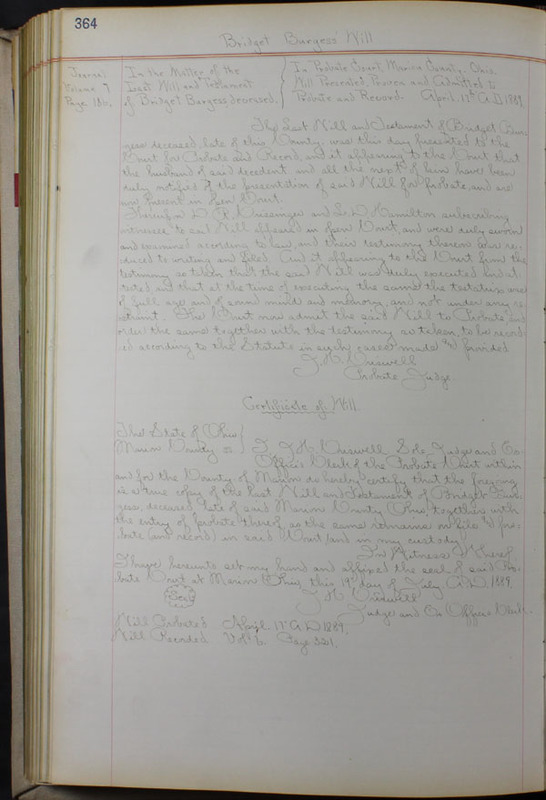 364
Bridget Burgess' Will
Journal
Volume 7
Page 186.
In the Matter of the
Last Will and Testament
of Bridget Burgess deceased.
In Probate Court, Marion County, Ohio.
Will Presented, Proven and Admitted to
Probate and Record. April 17th A.D. 1889.
The Last Will and Testament of Bridget Bur-
gess deceased, late of this County, was this day presented to the
Court for Probate and Record, and it appearing to the Court that
the husband of said decedent and all the next of kin have been
duly notified of the presentation of said Will for probate, and are
now present in open Court.
Thereupon D. R. and W Hamilton subscribing
witnesses to said Will appeared in open Court, and were duly sworn
and examined according to law, and their testimony thereon was re-
duced to writing and filed. And it appearing to the Court from the
testimony so taken that the said Will was duly executed and at-
tested, and that at the time of executing the same the testatrix was
of full age and of sound mind and memory, and not under any re-
straint. The Court now admit the said Will to Probate and
order the same together with the testimony so taken, to be record-
ed according to the Statute in such cases made & provided
J. H. Criswell
Probate Judge.
Certificate of Will.
The State of Ohio
Marion County ss
I, J. H. Criswell Sole Judge and Ex-
Officio Clerk of the Probate Court within
and for the County of Marion do hereby certify that the foregoing
is a true copy of the Last Will and Testament of Bridget Bur-
gess, deceased, late of said Marion County, Ohio, together with
the entry of probate thereof, as the same remains on file & pro-
bate (and record) in said Court and in my custody.
In Witness Whereof
I have hereunto set my hand and affixed the seal of said Pro-
bate Court at Marion Ohio, this 19th day of July A.D. 1889.
Seal
J. H. Criswell
Judge and Ex Officio Clerk.
Will Probated April 17 A.D. 1889.
Will Recorded Vol 6. Page 321.